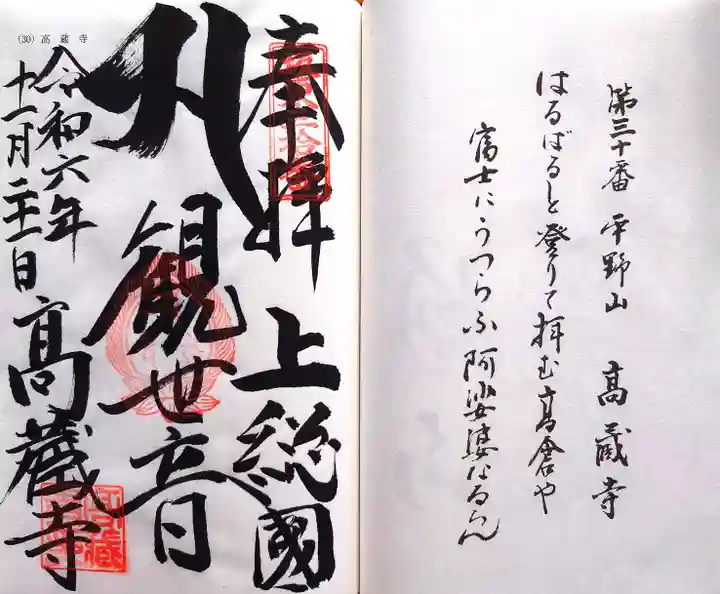 第三十番 平野山 高蔵寺
はるばると登りて拝む高倉や
富士にうつらふ阿娑婆なるらん
奉拝 上総國
観世音
令和六年
十一月
髙蔵寺
(30) 高蔵寺